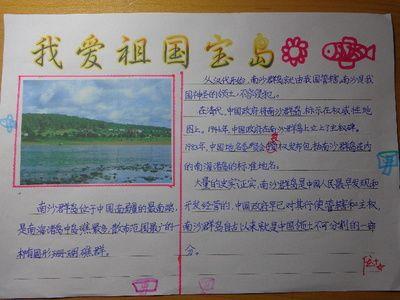 我爱祖国宝岛
从汉代开始,南沙群岛就由我国管辖,南沙是我
国神圣的领土,不容侵犯。
在清代,中国政府将南沙群岛标示在权威性地
图上。1946年,中国政府在南沙群岛上立了主权碑。
1983年,中国地名委员会授权发布包括南沙群岛在内
的南海诸岛的标准地名。
大量的史实证实,南沙群岛是中国人民最早发现和
开发经营的,中国政府早已对其行使管辖和主权,
南沙群岛自古以来就是中国领土不可分割的一部
分。
南沙群岛位于中国南疆的最南端,
是南海诸岛中岛礁最多,散布范围最广的
椭圆形珊瑚礁群。